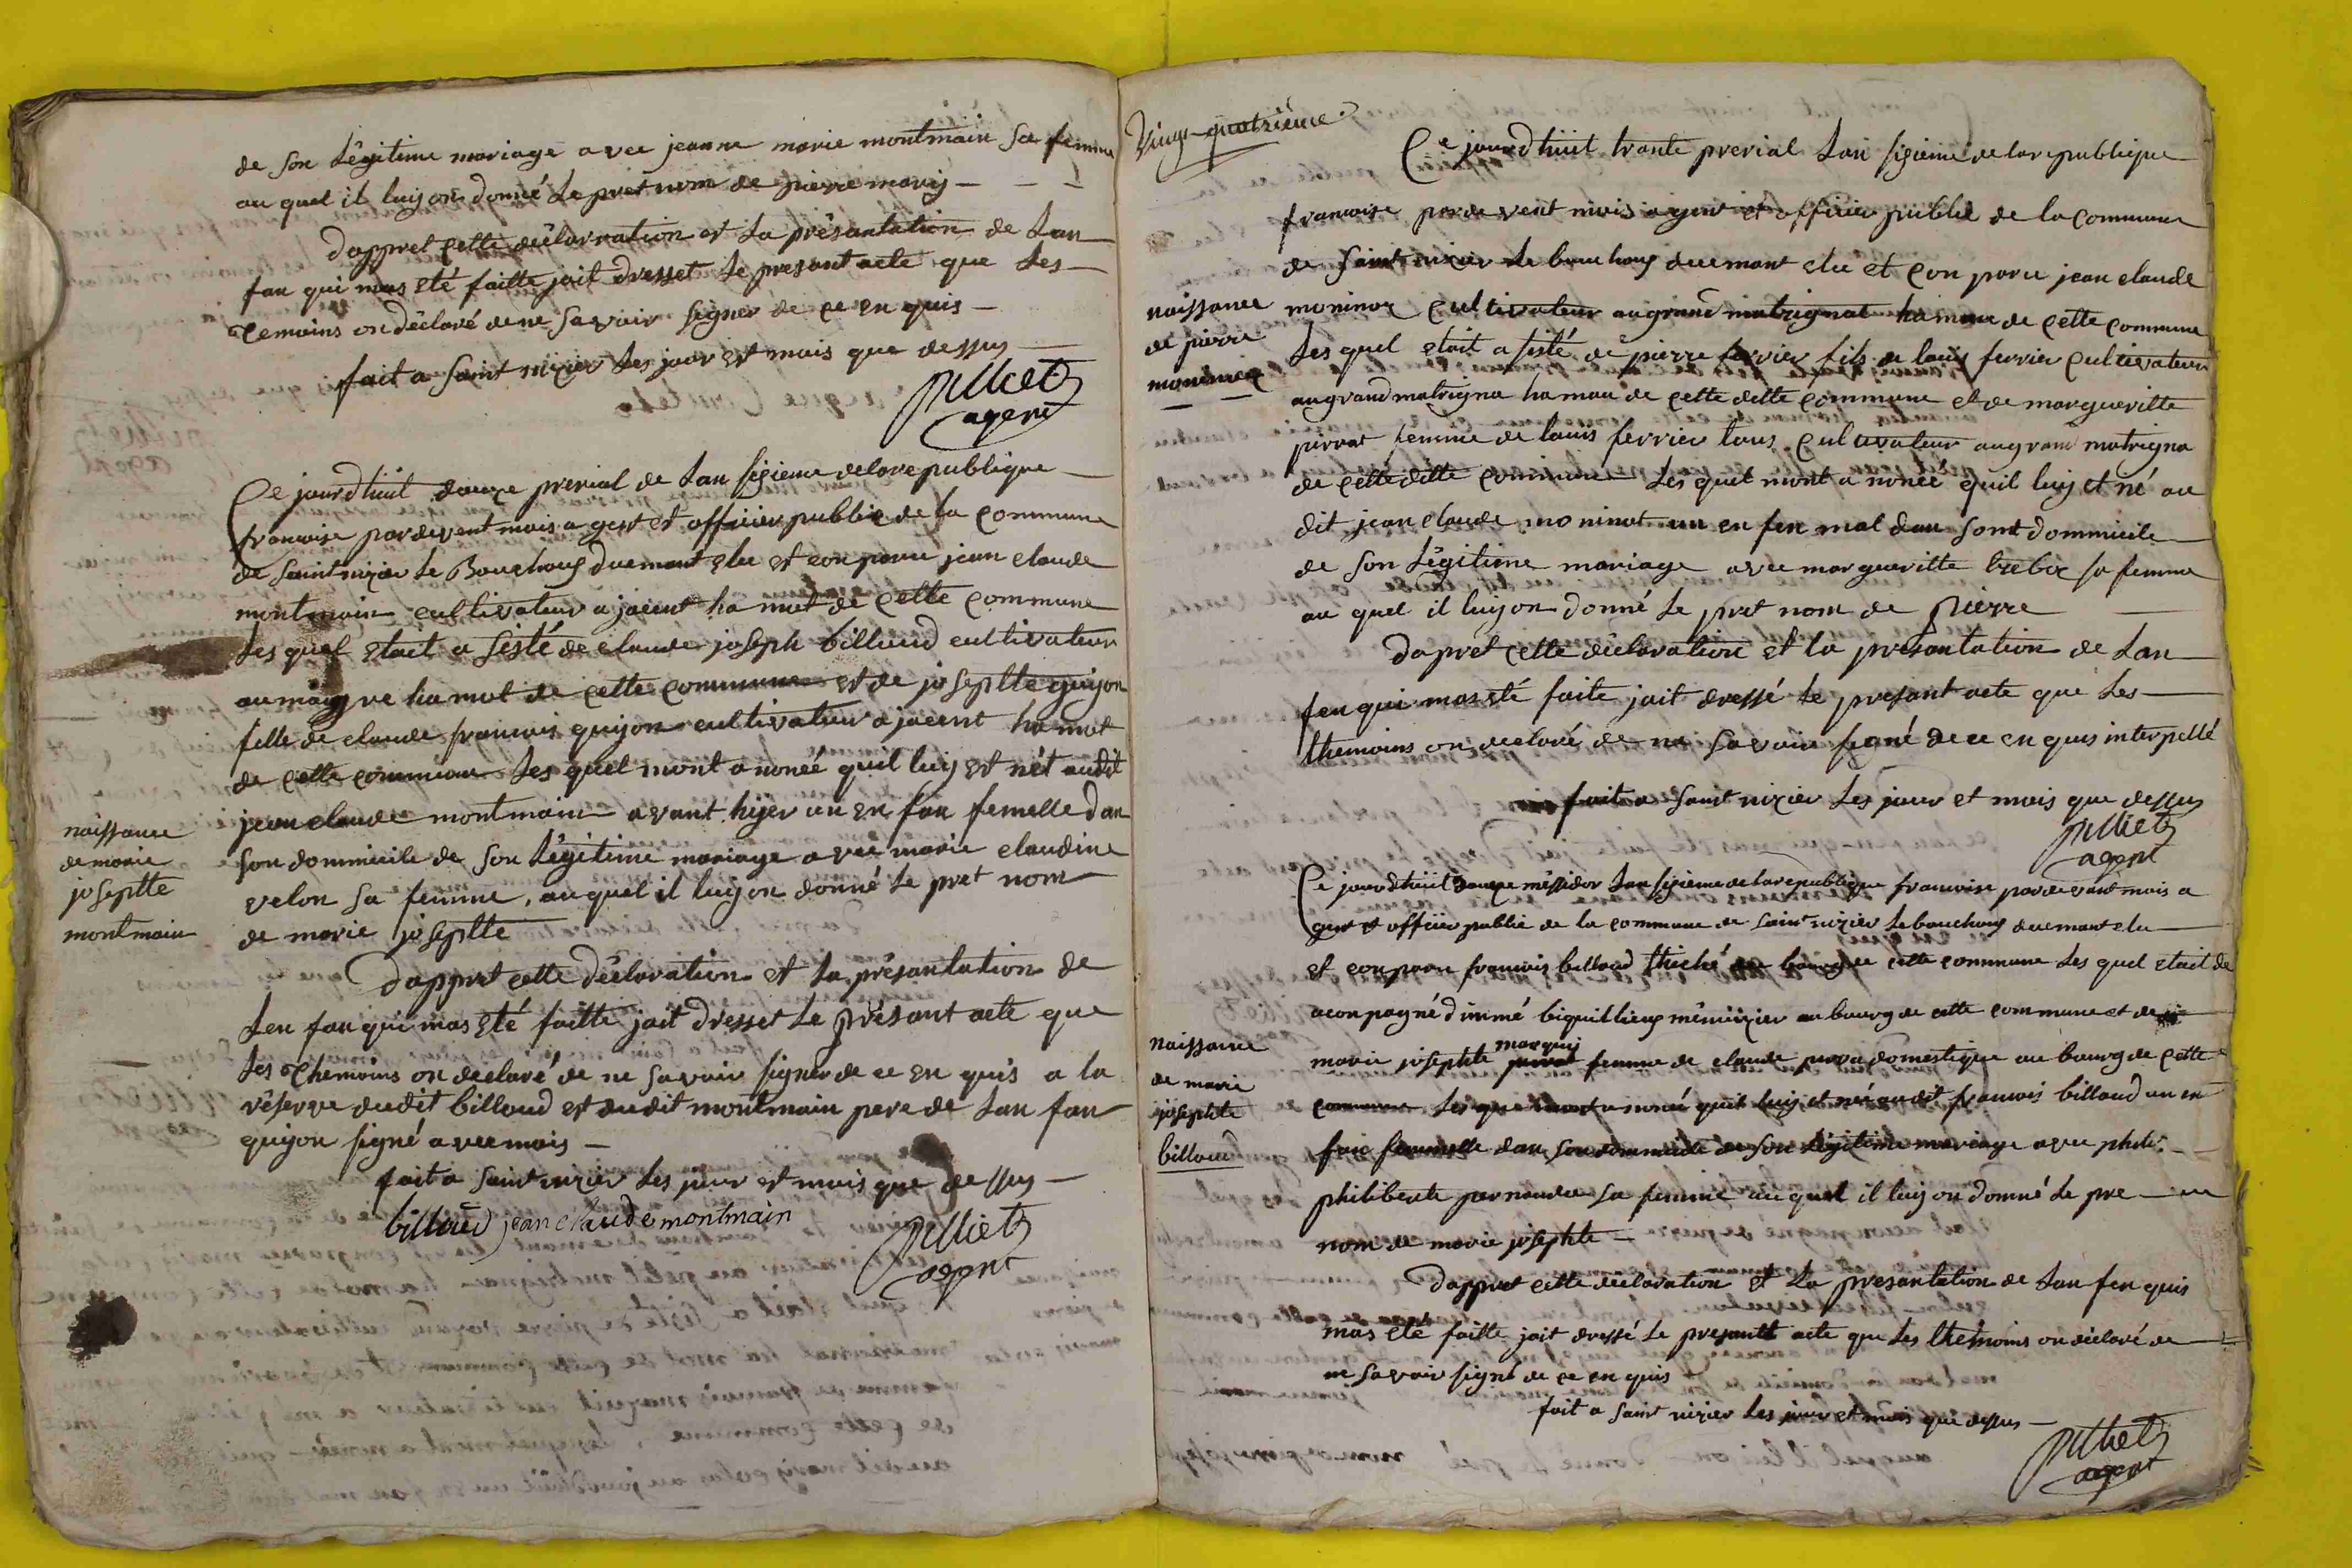 de son Légitime mariage avec jeanne marie montmain sa femme
au quel il luy on donné Le pret nom de pierre mary
dappret cette déclarration et La présantation de Lan
fan qui mas eté faitte jait dresset Le presant acte que Les
temoins on déclaré de ne savoir signer de ce en quis
fait a saint nizier Les jour et mois que dessus
pilliet
agent
Ce jourdhuit douze prerial de Lan sizieme de la republique
francoise pardevent mois agent et officier public de la commune
de saint nizier Le Bouchous duemant elu et conparu jean claude
montmain cultivateur a jacent hamot de cette commune
Les quel etait a sisté de claude joseph billoud cultivateur
au magre hamot de cette commune et de joseptte guyon
fille de claude francois guyon cultivateur a jacent hamot
de cette commune Les quel mont anoncé quil luy et nét audit
jean claude montmain avant hyer un en fan femelle dan
son dommicile de son Légitime mariage avec marie claudine
velon sa femme, au quel il luy on donné Le pret nom
de marie joseptte
naissance
de marie
joseptte
montmain
dappret cette déclaration et La présantation de
Len fan qui mas eté faitte jait dresset Le présant acte que
Les themoins on declaré de ne savoir signer de ce en quis a la
réserve dudit billoud et dudit montmain pere de Lan fan
quij on signé avec mois
fait a saint nizier Les jour et mois que dessus
billoud jean claude montmain
pilliet
agent
Vingt quatrième
Ce jourdhuit trante prerial Lan sizieme de la republique
francoise pardevent mois agent et officier public de la commune
de saint nizier Le bouchous duemant elu et conparu jean claude
naissance
de pierre
moninoz
moninoz cultivateur au grand matrignat hamau de cette commune
Les quel etait a sisté de pierre ferrier fils de louis ferrier cultivateur
au grand matrigna hamau de cette ditte commune et de margueritte
pirrat femme de louis ferrier tous cultivateur au grand matrigna
de cette ditte commune Les quel mont anoncé quil luy et né au
dit jean claude moninot un en fen mal dan sont dommicile
de son Légitime mariage avec margueritte sa femme
au quel il luy on donné Le pret nom de pierre
dapret cette déclaration et la présantation de Lan
fen qui mas eté faite jait dressé Le presant acte que Les
themoins on declaré de ne savoir signé de ce en quis interpellé
fait a saint nizier Les jour et mois que dessus
pilliet
agent
Ce jourdhuit douze méssidor Lan sizieme de la republique francoise pardevand mois a
gent et officier public de la commune de saint nizier Le bouchous duemant elu
et conparu francois billoud au bourg de cette commune Les quel etait de
aconpagné dimmé menuizier au bourg de cette commune et de
naissance
de marie
joseptte
billoud
marie joseptte marquij femme de claude domestique au bourg de cette
commune Les quel mont anoncé quil luy et né au dit francois billoud un en
fan femmelle dan son dommicile de son Légitime mariage avec phili
philiberte sa femme au quel il luy on donné Le pre
nom de marie joseptte
dappret cette déclaration et La presantation de Lan fen quis
mas eté faitte jait dressé Le presantt acte que Les themoins on déclaré de
ne savoir signé de ce en quis
fait a saint nizier Les jour et mois que dessus
pilliet
agent